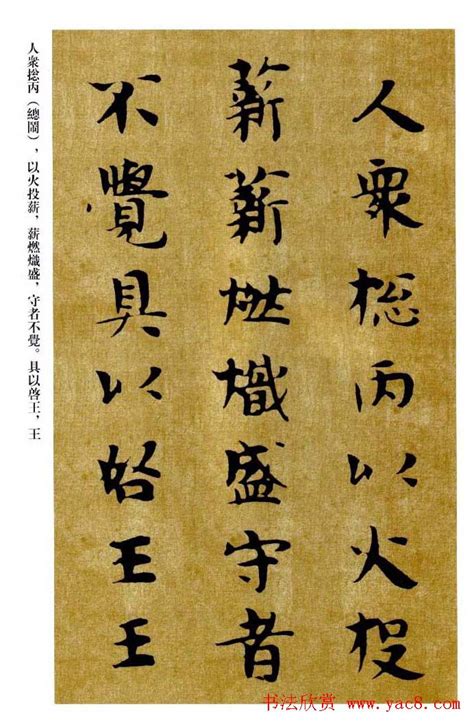 人衆捴丙以火投
薪薪燃熾盛守者
不覺具以啓王王
人衆捴丙（總鬧），以火投薪，薪燃熾盛，守者不覺。具以啓王，王
书法欣赏 www.yac8.com